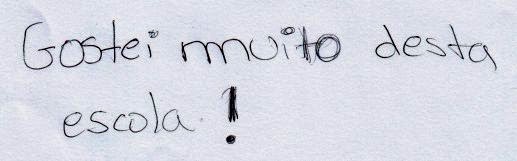 Gostei muito desta
escola!